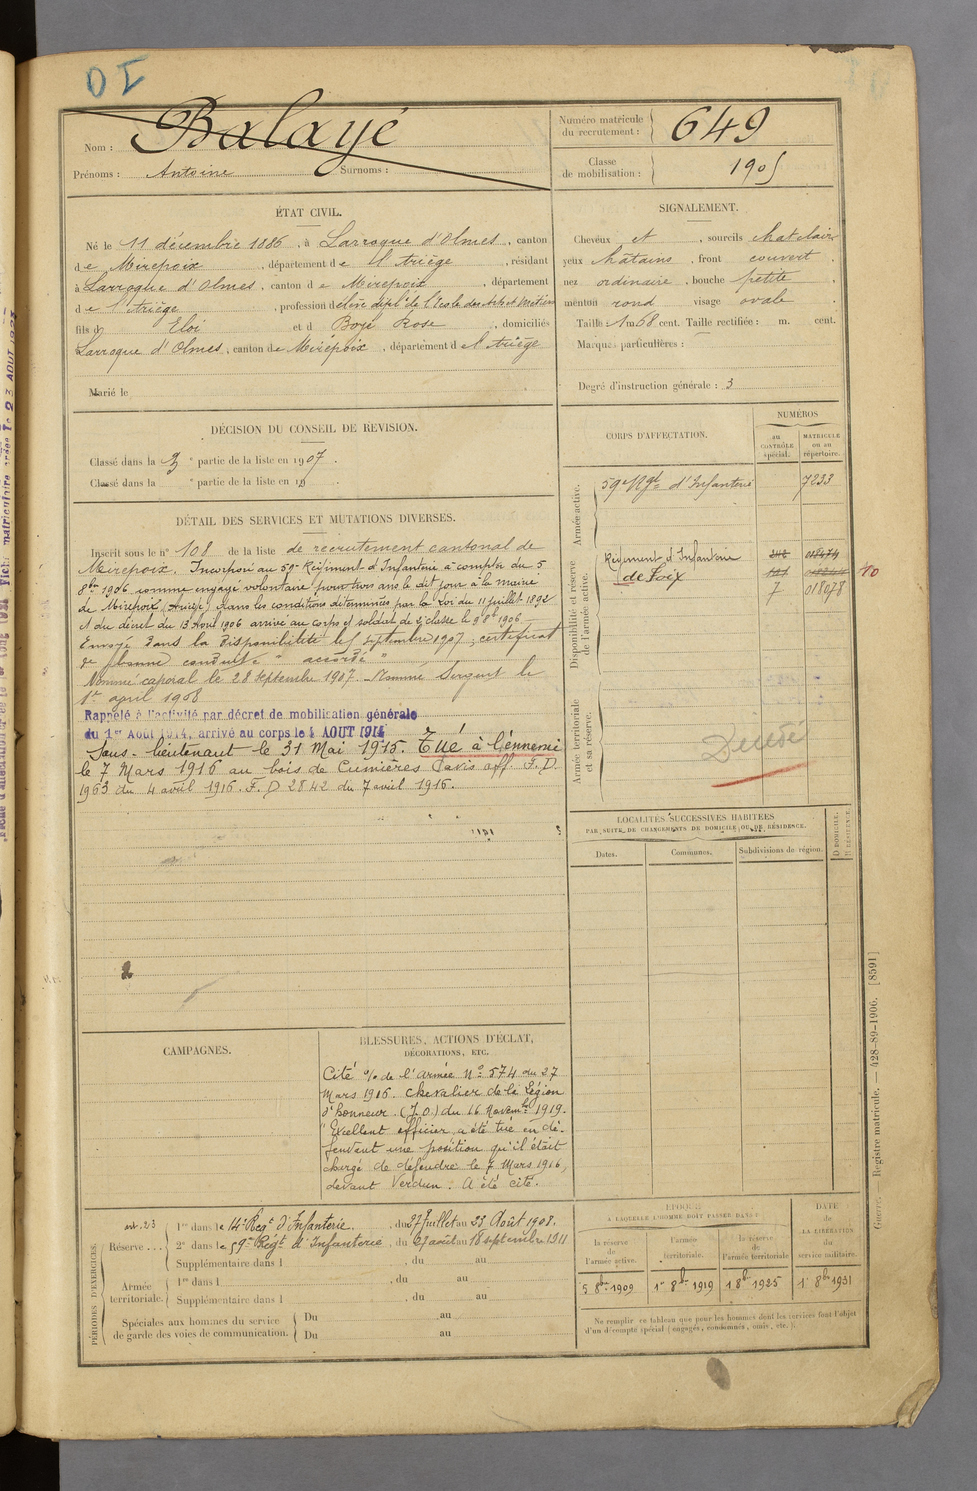 Nom : Balayé
Prénoms : Antoine Surnoms :
Numéro matricule du recrutement : 649
Classe de mobilisation : 1905
ÉTAT CIVIL.
Né le 11 décembre 1886, à Larroque d'Olmes, canton
de Mirepoix, département de l'Ariège, résidant
à Larroque d'Olmes, canton de Mirepoix, département
de l'Ariège, profession d'élève dipl. de l'Ecole des Arts et Métiers
fils d' Eloi et d Boyé Rose, domiciliés
Larroque d'Olmes, canton de Mirepoix, département de l'Ariège
Marié le
SIGNALEMENT.
Cheveux et, sourcils chat clair
yeux châtains, front couvert,
nez ordinaire, bouche petite,
menton rond visage ovale
Taille 1m 68 cent. Taille rectifiée : m. cent.
Marques particulières :
Degré d'instruction générale : 3
DÉCISION DU CONSEIL DE REVISION.
Classé dans la 3e partie de la liste en 1907.
Classé dans la e partie de la liste en 19
CORPS D'AFFECTATION.
NUMÉROS
au CONTRÔLE spécial.
MATRICULE ou au répertoire.
Armée active.
59e Rgt d'Infanterie 7233
Disponibilité et réserve de l'armée active.
Régiment d'Infanterie
de Foix
7 018078
10
Armée territoriale et sa réserve.
Décédé
DÉTAIL DES SERVICES ET MUTATIONS DIVERSES.
Inscrit sous le n° 108 de la liste de recrutement cantonal de
Mirepoix. Incorporé au 59e Régiment d'Infanterie à compter du 5
8bre 1906 comme engagé volontaire pour trois ans le dit jour à la mairie
de Mirepoix (Ariège) dans les conditions déterminées par la Loi du 11 juillet 1892
et du décret du 13 Août 1906 arrivé au corps et soldat de 2e classe le 9 8bre 1906
Envoyé dans la disponibilité le septembre 1907, certificat
de bonne conduite " accordé "
Nommé caporal le 28 Septembre 1907. Nommé Sergent le
1er avril 1908
Rappelé à l'activité par décret de mobilisation générale
du 1er Août 1914, arrivé au corps le 4 AOUT 1914
Sous-lieutenant le 31 Mai 1915. Tué à l'ennemi
le 7 Mars 1916 au bois de Cumières (avis off. F.D.
1963 du 4 avril 1916. F.D. 2842 du 7 avril 1916.
LOCALITÉS SUCCESSIVES HABITÉES
PAR SUITE DE CHANGEMENTS DE DOMICILE OU DE RÉSIDENCE.
Dates. Communes. Subdivisions de région. D DOMICILE. R RÉSIDENCE.
CAMPAGNES.
BLESSURES, ACTIONS D'ÉCLAT,
DÉCORATIONS, ETC.
Cité % de l'armée N° 574 du 27
Mars 1916. Chevalier de la Légion
d'honneur. (J.O.) du 16 Novembre 1919.
"Excellent officier, a été tué en dé-
fendant une position qu'il était
chargé de défendre le 7 Mars 1916,
devant Verdun. A été cité.
PÉRIODES D'EXERCICES.
art. 23
Réserve ... 1re dans le 14e Régt d'Infanterie, du 27 Juillet au 23 Août 1908.
2e dans le 59e Régt d'Infanterie, du 27 août au 18 septembre 1911
Supplémentaire dans l , du au
Armée territoriale. 1re dans l , du au
Supplémentaire dans l , du au
Spéciales aux hommes du service de garde des voies de communication. Du au
Du au
ÉPOQUE
À LAQUELLE L'HOMME DOIT PASSER DANS :
la réserve de l'armée active.
l'armée territoriale.
la réserve de l'armée territoriale
DATE de LA LIBÉRATION du service militaire.
5 8bre 1909 1er 8bre 1919 1 8bre 1925 1er 8bre 1931
Ne remplir ce tableau que pour les hommes dont les services font l'objet
d'un décompte spécial (engagés, condamnés, omis, etc.).
Guerre. — Registre matricule. — 428-89-1906. [8591]